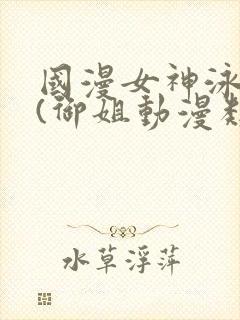 國漫女神泳
(御姐動漫
水草浮萍